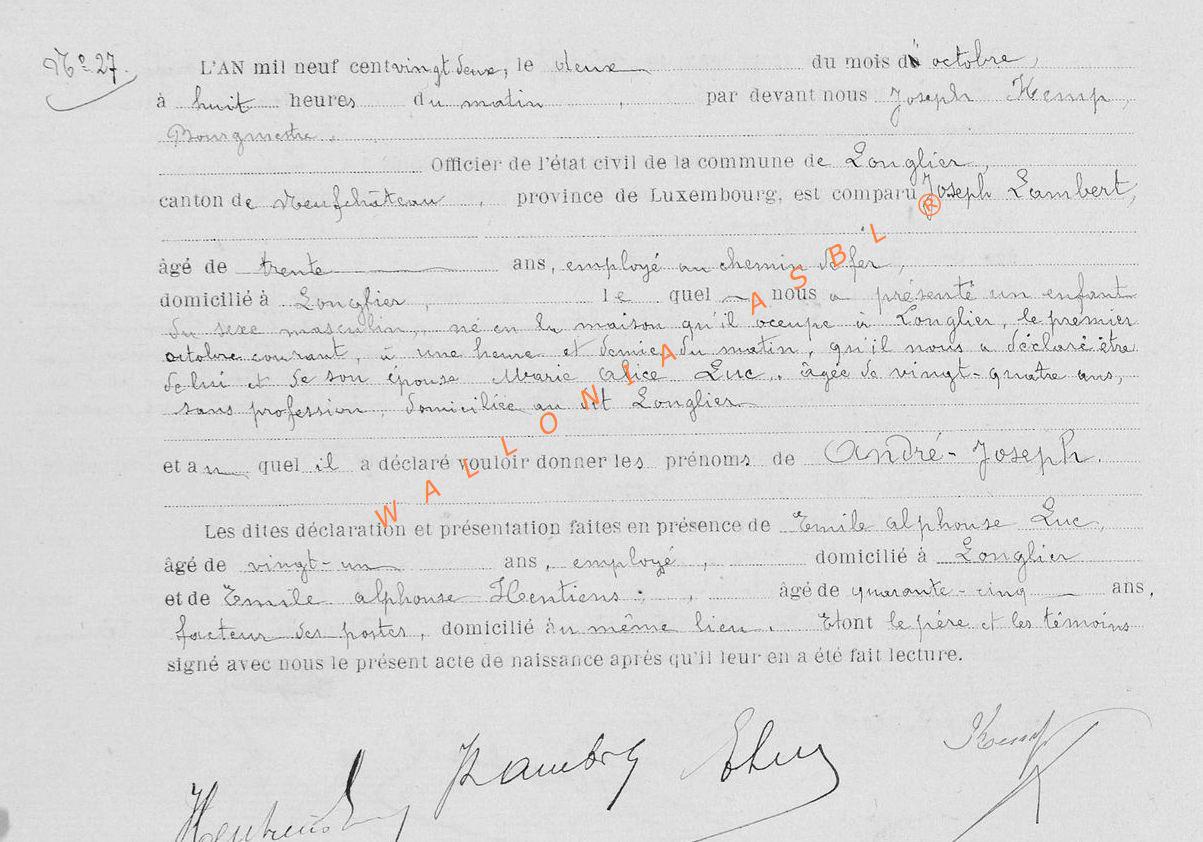 N° 27.
L'AN mil neuf cent vingt deux, le deux du mois d' octobre,
à huit heures du matin, par devant nous Joseph Kemp,
Bourgmestre,
Officier de l'état civil de la commune de Longlier,
canton de Neufchâteau, province de Luxembourg, est comparu Joseph Lambert,
âgé de trente ans, employé au chemin de fer,
domicilié à Longlier, le quel nous a présenté un enfant
du sexe masculin, né en la maison qu'il occupe à Longlier, le premier
octobre courant, à une heure et demie du matin, qu'il nous a déclaré être
de lui et de son épouse Marie Alice Luc, âgée de vingt-quatre ans,
sans profession, domiciliée au dit Longlier
et au quel il a déclaré vouloir donner les prénoms de André-Joseph.
Les dites déclaration et présentation faites en présence de Emile Alphonse Luc,
âgé de vingt-un ans, employé, domicilié à Longlier
et de Emile Alphonse Hentiens, âgé de quarante-cinq ans,
facteur des postes, domicilié au même lieu. Et ont le père et les témoins
signé avec nous le présent acte de naissance après qu'il leur en a été fait lecture.
Kemp
WALLONIA ASBL ®